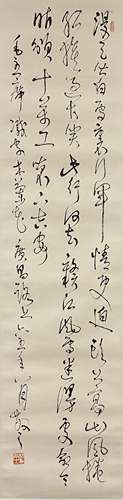 漫天皆白雪里行军情更迫头上高山风卷
红旗过大关此行何去赣江风雪迷漫处命令
昨颁十万工农下吉安
毛主席减字木兰花广昌路上六五年八月散之